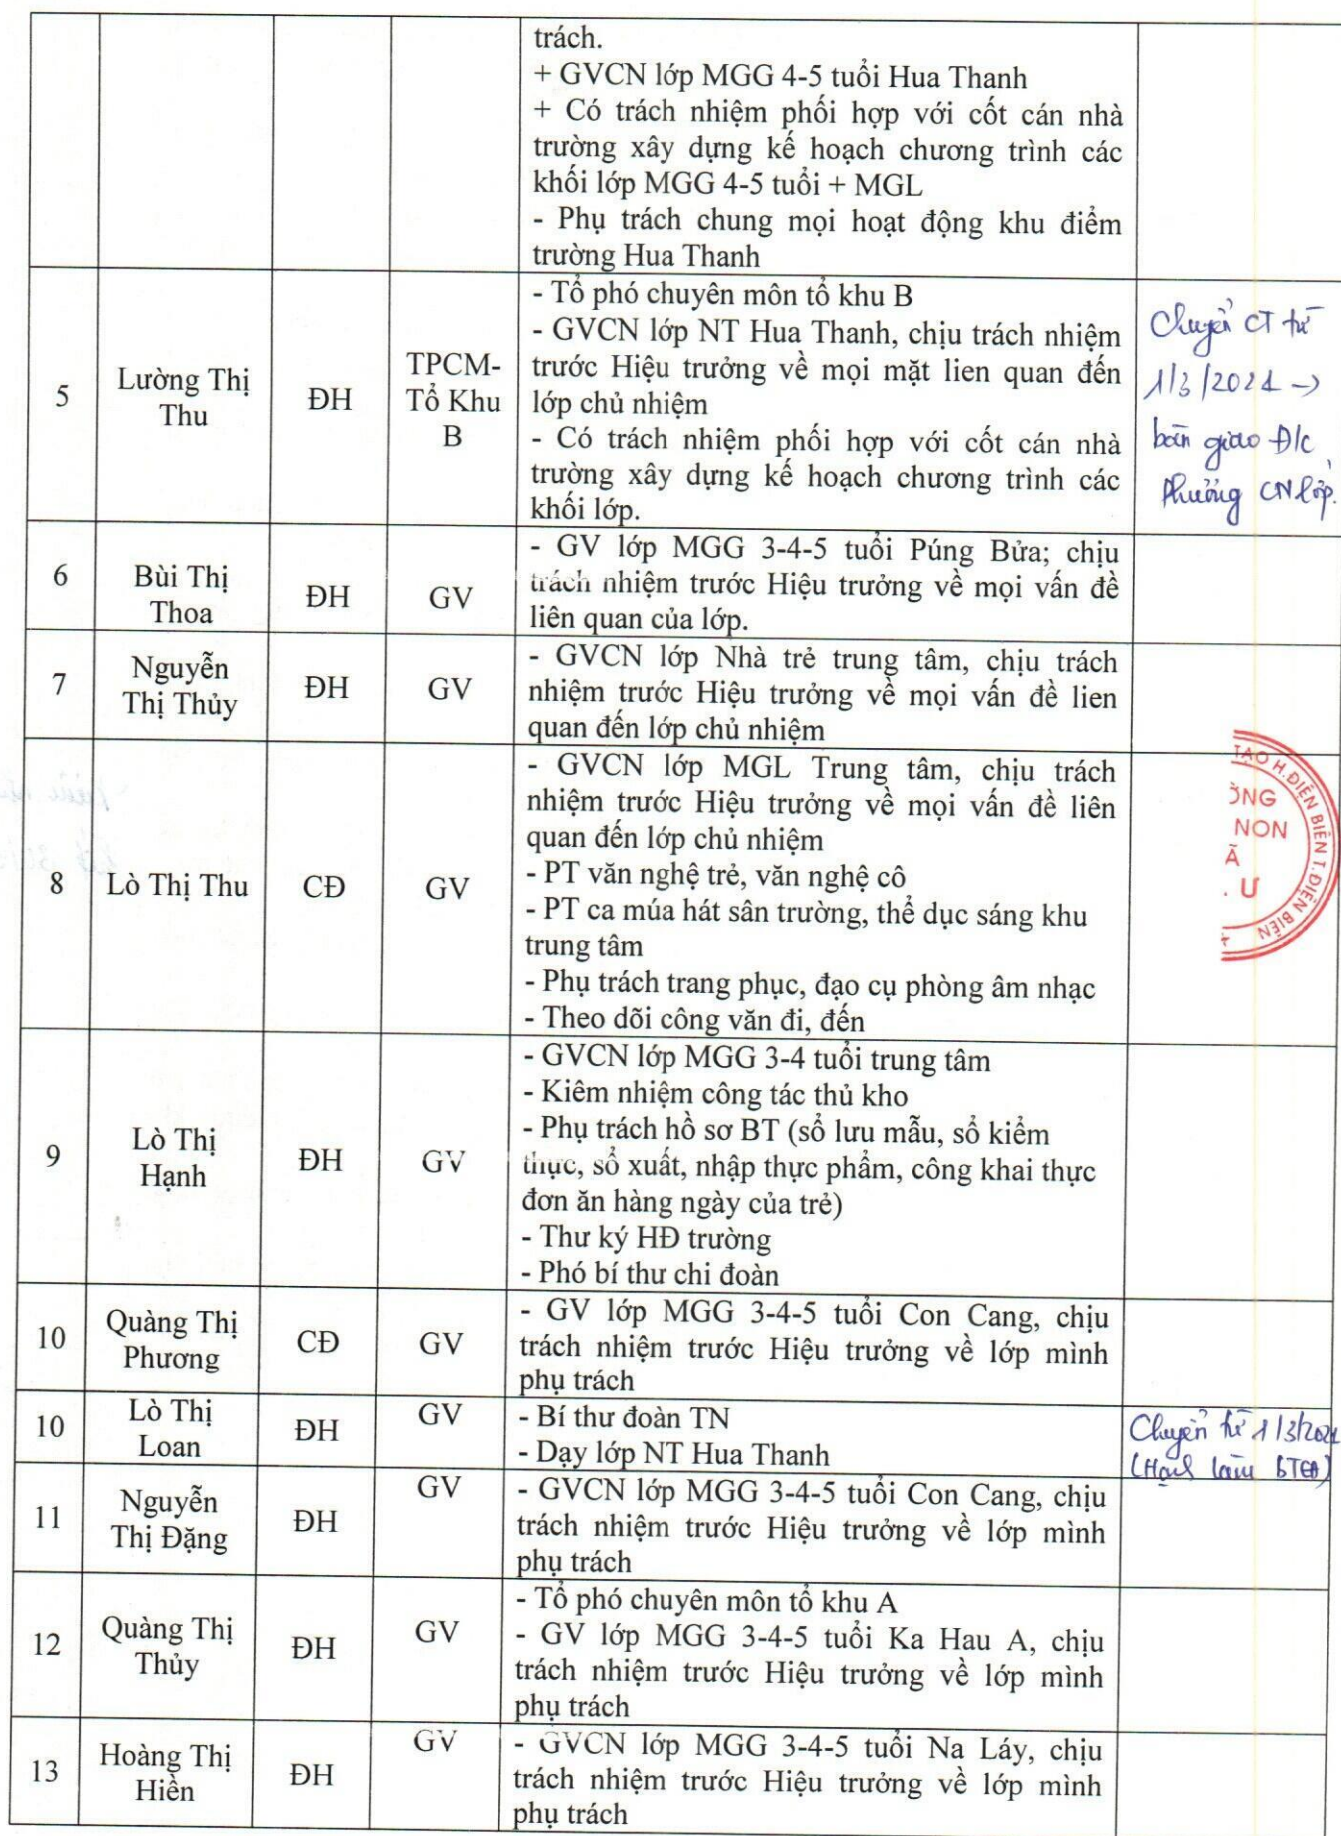 trách.
+ GVCN lớp MGG 4-5 tuổi Hua Thanh
+ Có trách nhiệm phối hợp với cốt cán nhà
trường xây dựng kế hoạch chương trình các
khối lớp MGG 4-5 tuổi + MGL
- Phụ trách chung mọi hoạt động khu điểm
trường Hua Thanh
5
Lường Thị
Thu
ĐH
TPCM-
Tổ Khu
B
- Tổ phó chuyên môn tổ khu B
- GVCN lớp NT Hua Thanh, chịu trách nhiệm
trước Hiệu trưởng về mọi mặt lien quan đến
lớp chủ nhiệm
- Có trách nhiệm phối hợp với cốt cán nhà
trường xây dựng kế hoạch chương trình các
khối lớp.
Chuyển CT từ
1/3/2021 ->
bàn giao Đ/c
Phưởng CN lớp.
6
Bùi Thị
Thoa
ĐH
GV
- GV lớp MGG 3-4-5 tuổi Púng Bửa; chịu
trách nhiệm trước Hiệu trưởng về mọi vấn đề
liên quan của lớp.
7
Nguyễn
Thị Thủy
ĐH
GV
- GVCN lớp Nhà trẻ trung tâm, chịu trách
nhiệm trước Hiệu trưởng về mọi vấn đề lien
quan đến lớp chủ nhiệm
8
Lò Thị Thu
CĐ
GV
- GVCN lớp MGL Trung tâm, chịu trách
nhiệm trước Hiệu trưởng về mọi vấn đề liên
quan đến lớp chủ nhiệm
- PT văn nghệ trẻ, văn nghệ cô
- PT ca múa hát sân trường, thể dục sáng khu
trung tâm
- Phụ trách trang phục, đạo cụ phòng âm nhạc
- Theo dõi công văn đi, đến
TẠO H.ĐIỆN BIÊN T.ĐIỆN BIÊN
ỜNG
NON
Ã
. Ư
9
Lò Thị
Hạnh
ĐH
GV
- GVCN lớp MGG 3-4 tuổi trung tâm
- Kiêm nhiệm công tác thủ kho
- Phụ trách hồ sơ BT (sổ lưu mẫu, sổ kiểm
thực, sổ xuất, nhập thực phẩm, công khai thực
đơn ăn hàng ngày của trẻ)
- Thư ký HĐ trường
- Phó bí thư chi đoàn
10
Quàng Thị
Phương
CĐ
GV
- GV lớp MGG 3-4-5 tuổi Con Cang, chịu
trách nhiệm trước Hiệu trưởng về lớp mình
phụ trách
10
Lò Thị
Loan
ĐH
GV
- Bí thư đoàn TN
- Dạy lớp NT Hua Thanh
Chuyển từ 1/3/2021
(Hạnh làm
11
Nguyễn
Thị Đặng
ĐH
GV
- GVCN lớp MGG 3-4-5 tuổi Con Cang, chịu
trách nhiệm trước Hiệu trưởng về lớp mình
phụ trách
12
Quàng Thị
Thủy
ĐH
GV
- Tổ phó chuyên môn tổ khu A
- GV lớp MGG 3-4-5 tuổi Ka Hau A, chịu
trách nhiệm trước Hiệu trưởng về lớp mình
phụ trách
13
Hoàng Thị
Hiền
ĐH
GV
- GVCN lớp MGG 3-4-5 tuổi Na Láy, chịu
trách nhiệm trước Hiệu trưởng về lớp mình
phụ trách